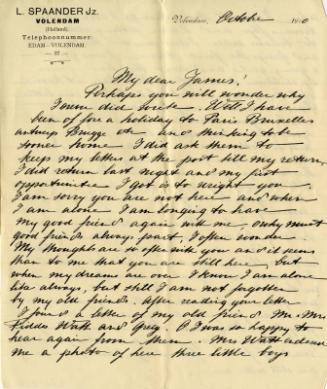 L. SPAANDER Jz.
VOLENDAM
(Holland)
Telephoonnummer
EDAM-VOLENDAM
Volendam, October 19 0
My dear James!
Perhaps you will wonder why
I never did wrote. Well I have
been of for a holiday to Paris Bruxelles
antwerp Brugge etc and thinking to be
sooner home I did ask them to
keep my letters at the post till my return
I did return last night and my first
opportunitie I got is to weight you.
I am sorry you are not here and when
I am alone I am longing to have
my good friend again with me. Why must
good friends always part, I often wonder
My thoughts are so often with you an it seems
than to me that you are still here, but
when my dreams are over I know I am alone
like always, but still I am not forgotten
by my old friends. After reading your letter
I found a letter of my old friend Ms Mrs
Watt and Greig. O I was so happy to
hear again from them. Mrs Watt
me a photo of here three little boys